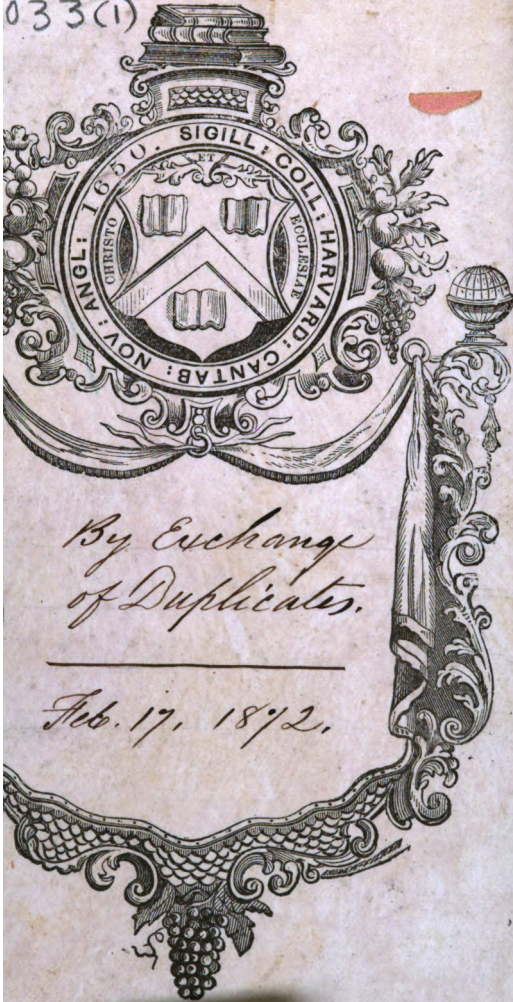 033(1)
SIGILL: COLL: HARVARD: CANTAB: NOV: ANGL: 1650.
CHRISTO ET ECCLESIAE
By Exchange
of Duplicates.
Feb. 17, 1872.